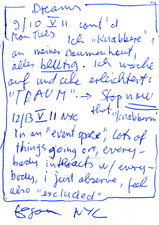 Dreams
9/10 V 11 cont'd
from Tues Ich "knabbere",
an meiner Daumenhaut,
alles blutig. Ich wache
auf und sehe erleichtert:
"TRAUM". → Stop now
that "knabbern"
12/13 V 11 NYC
In an "event space", lots of
things going on, every-
body interacts w/ every-
body, i just observe, feel
also "excluded"
NYC